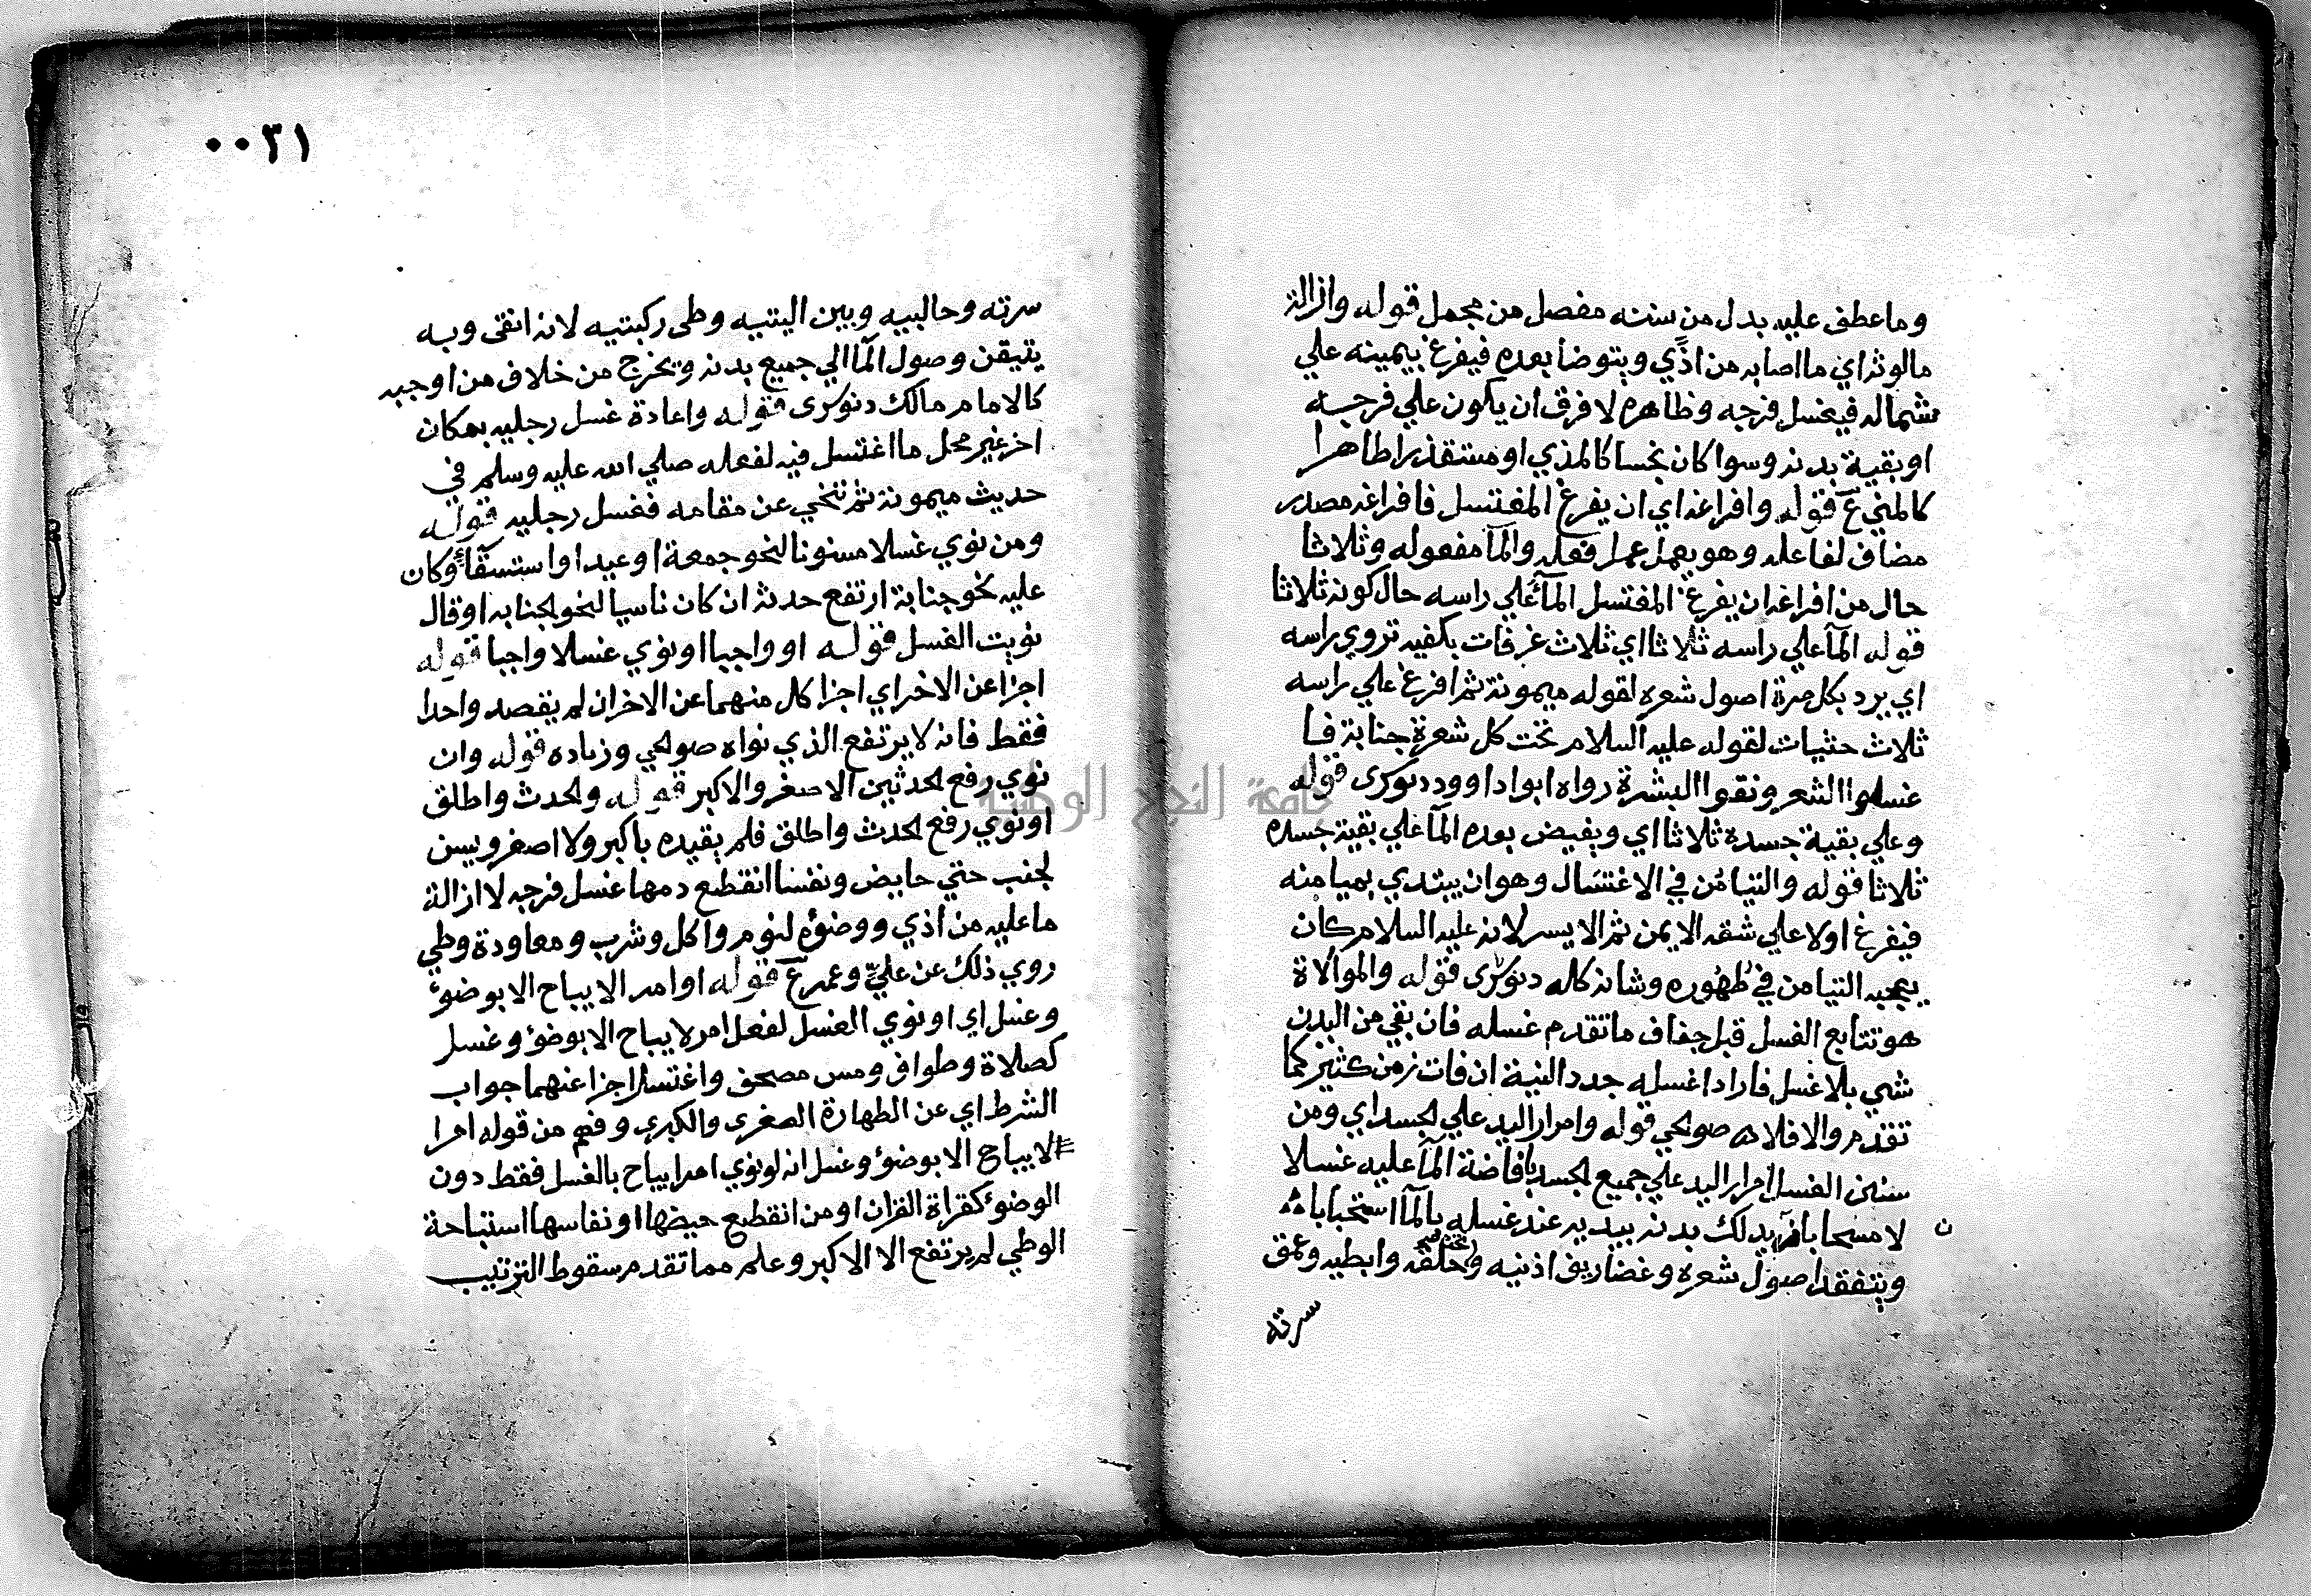 وما عطف عليه بدل من سننه مفصل من مجمل قوله وازالة
مالوثه اي ما اصابه من اذًي ويتوضا بعده فيفرغ بيمينه علي
شماله فيغسل فرجه وظاهره لا فرق ان يكون علي فرجه
او بقية بدنه وسوا كان نجسا كالمذي او مستقذرا طاهرا
كالمني ع قوله وافراغه اي ان يفرغ المغتسل فافراغه مصدر
مضاف لفاعله وهو يعمل عمل فعله والمآ مفعوله وثلاثا
حال من افراغه ان يفرغ المغتسل المآ علي راسه حال كونه ثلاثا
قوله المآ علي راسه ثلاثا اي ثلاث غرفات بكفيه تروي راسه
اي يرد بكل مرة اصول شعره لقوله ميمونة ثم افرغ علي راسه
ثلاث حثيات لقوله عليه السلام تحت كل شعرة جنابة فا
غسلوا الشعر ونقوا البشرة رواه ابوا داوود دنوكرى قوله
وعلي بقية جسده ثلاثا اي ويفيض بعده المآ علي بقية جسده
ثلاثا قوله والتيامُن في الاغتسال وهو ان يبتدي بميامنه
فيفرغ اولا علي شقه الايمن ثم الايسر لانه عليه السلام كان
يعجبه التيامن في طُهُوره وشانه كله دنوكرى قوله والموالاة
هو تتابع الغسل قبل جفاف ما تقدم غسله فان بقي من البدن
شي بلا غسل فاراد اغسله جدد النية ان فات زمن كثير كما
تقدم والا فلا اه صوالحي قوله وامرار اليد علي لجسد اي ومن
سنن الغسل امرار اليد علي جميع لجسد بافاضة المآ عليه غسلا
لا مسحا بان يدلك بدنه بيديه عند غسله بالمآ استحبابا
ن
ويتفقد اصول شعره وغضاريف اذنيه وتحت حلقه وابطيه وعمق
سرته
٠٠٣١
سرته وحالبيه وبين اليتيه وطى ركبتيه لانه انقى وبه
يتيقن وصول المآ الي جميع بدنه ويخرج من خلاف من اوجبه
كالامام مالك دنوكرى قوله واعادة غسل رجليه بمكان
اخر غير محل ما اغتسل فيه لفعله صلي الله عليه وسلم في
حديث ميمونة ثم تنحي عن مقامه فغسل رجليه قوله
ومن نوي غسلا مسنونا لنحو جمعة او عيد او استسقآءً وكان
عليه نحو جنابة ارتفع حدثه ان كان ناسيا لنحو لجنابه او قال
نويت الغسل قوله او واجبا او نوي غسلا واجبا قوله
اجزا عن الاخر اي اجزا كل منهما عن الاخر ان لم يقصد واحدا
فقط فانه لا يرتفع الذي نواه صوالحي وزياده قوله وان
نوي رفع لحدثين الاصغر والاكبر قوله ولحدث واطلق
او نوي رفع لحدث واطلق فلم يقيده باكبر ولا اصغر ويسن
لجنب حتي حايض ونفسا انقطع دمها غسل فرجه لا ازالة
ما عليه من اذي ووضوءه لنوم واكل وشرب ومعاودة وطي
روي ذلك عن عليٍّ وعمر ع قوله او امر الايباح الا بوضوء
وغسل اي او نوي الغسل لفعل امر لا يباح الا بوضوء وغسل
كصلاة وطواف ومس مصحف واغتسل اجزا عنهما جواب
الشرط اي عن الطهارة الصغرى والكبرى وفهم من قوله امرا
لا يباح الا بوضوء وغسل انه لو نوي امرا يباح بالغسل فقط دون
الوضوء كقراة القران او من انقطع حيضها او نفاسها استباحة
الوطي لم يرتفع الا الاكبر وعلم مما تقدم سقوط الترتيب
جامعة النجاح الوطنية